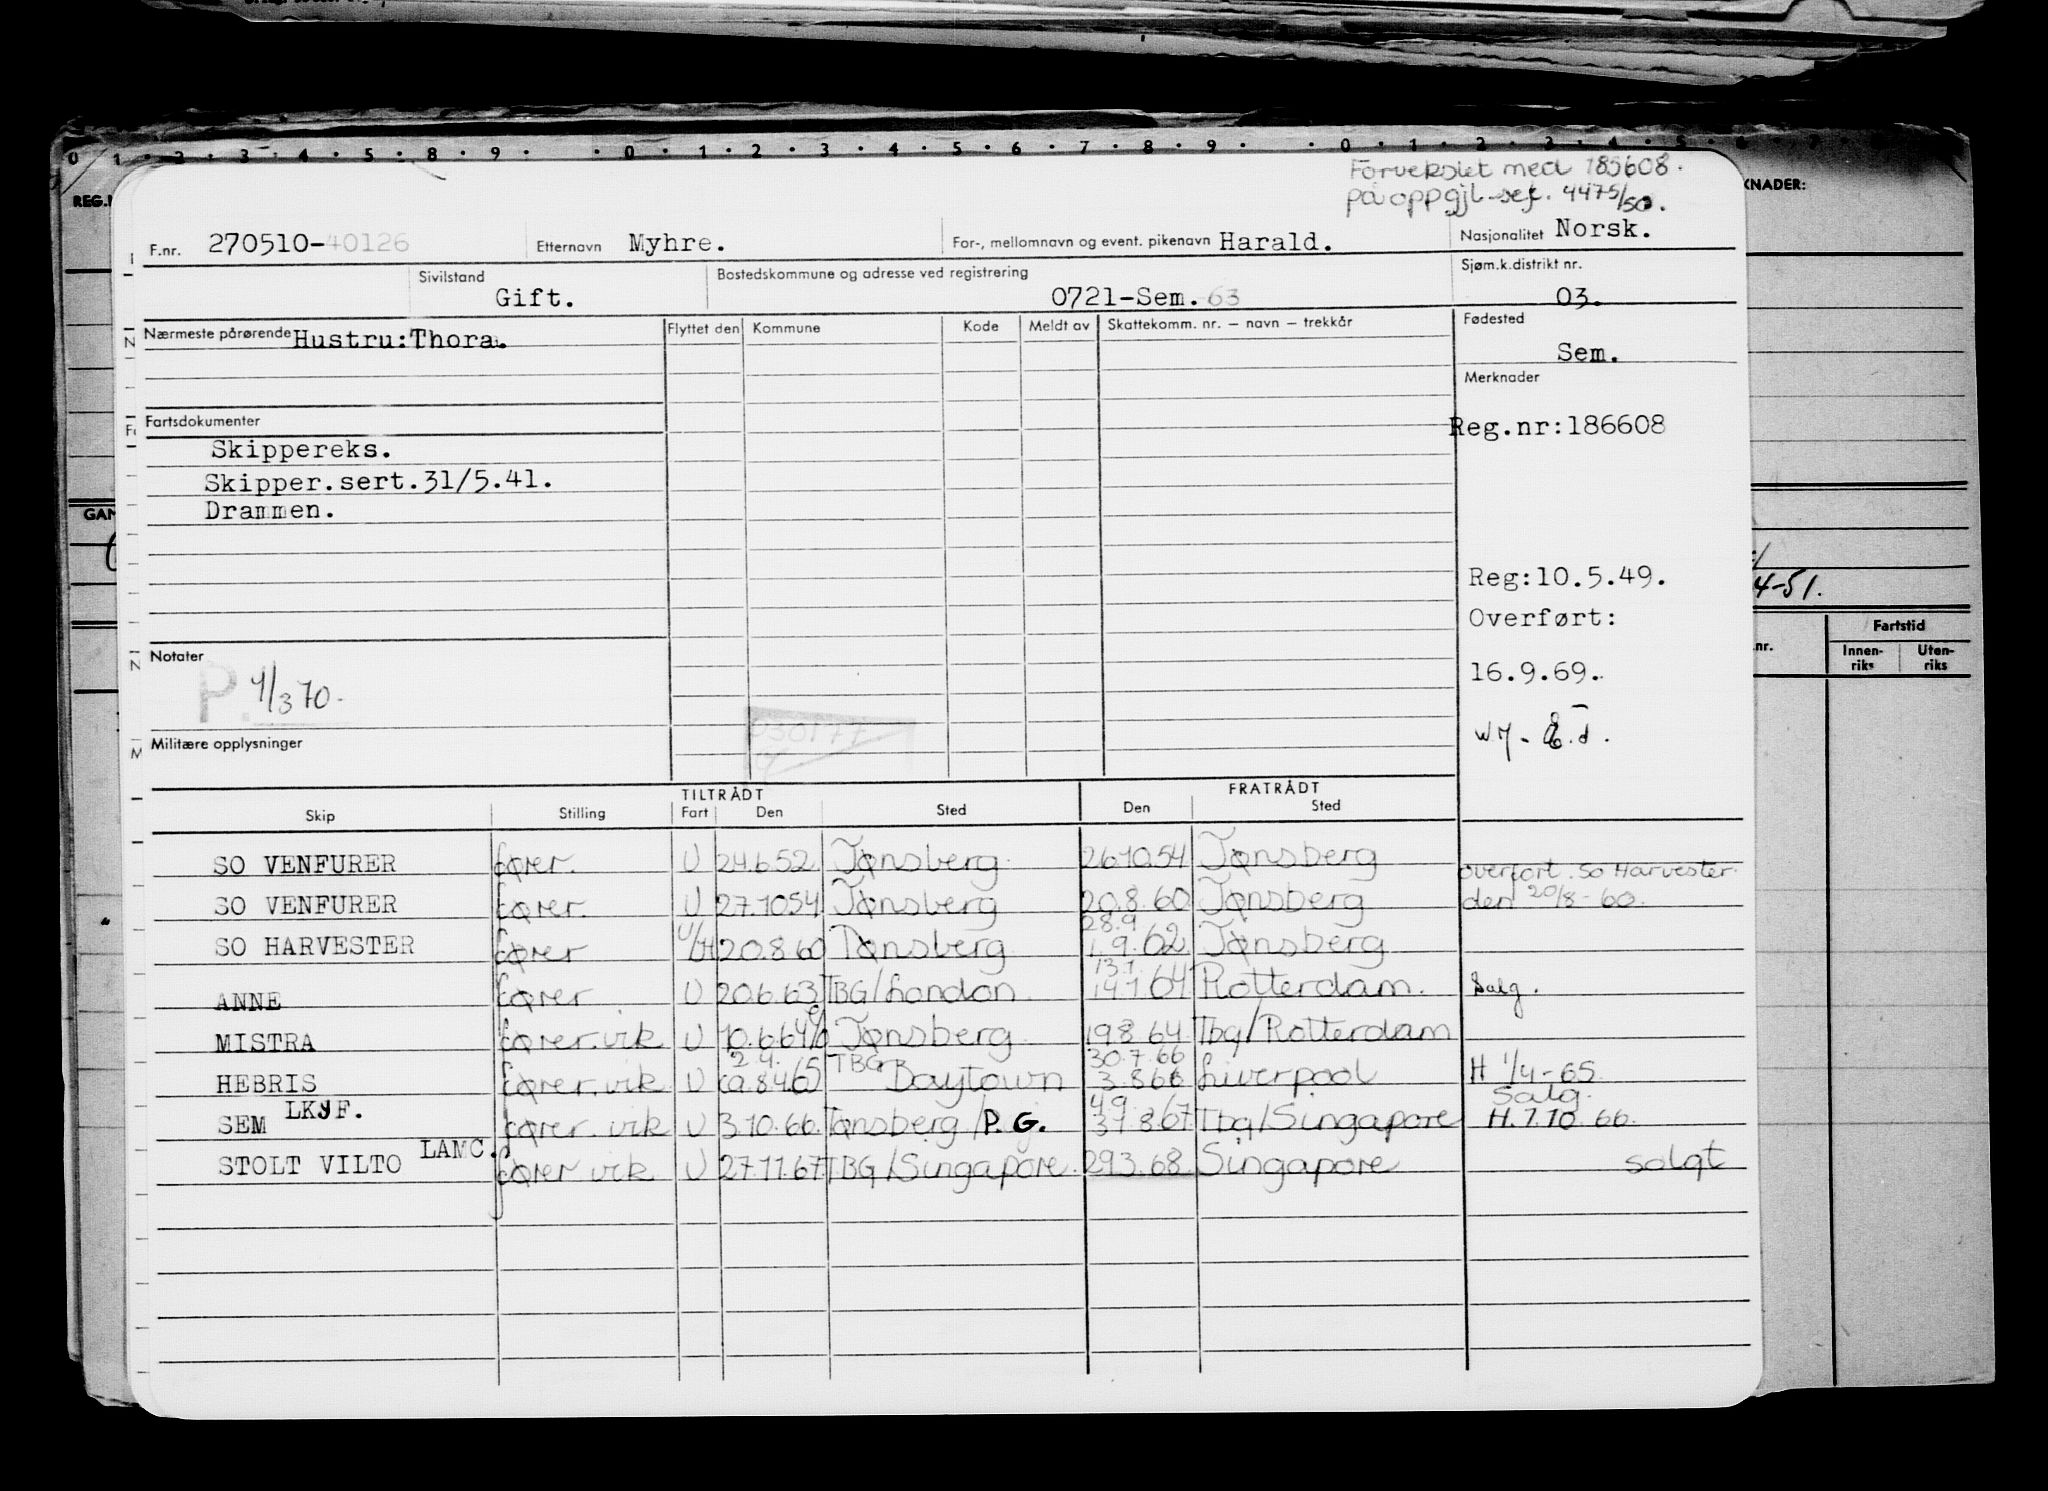 0 1 2 3 4 5 8 9 0 1 2 3 4 5 6 7 8 9 0 1 2 3 4 5 6 7
REG.N
KNADER:
Forvekslet med 185608.
på oppgjl-sef. 4475/50.
F.nr. 270510-40126 Etternavn Myhre. For-, mellomnavn og event. pikenavn Harald. Nasjonalitet Norsk.
Sivilstand Gift. Bostedskommune og adresse ved registrering 0721-Sem. 63 Sjøm.k.distrikt nr. 03.
Nærmeste pårørende Hustru:Thora. Flyttet den Kommune Kode Meldt av Skattekomm. nr. – navn – trekkår Fødested
Sem.
Merknader
Fartsdokumenter Reg.nr:186608
Skippereks.
Skipper.sert.31/5.41.
Drammen.
GAN
Reg:10.5.49.
4-51.
Overført:
Fartstid
Notater nr. Innen-riks Uten-riks
P. 1/3 70. 16.9.69.
P30177
Militære opplysninger
TILTRÅDT FRATRÅDT
Skip Stilling Fart Den Sted Den Sted
SO VENFURER fører. U 24.6.52 Tønsberg 26.10.54 Tønsberg overført. So Harvester
SO VENFURER fører. U 27.10.54 Tønsberg 20.8.60 Tønsberg den 20/8-60.
28.9
SO HARVESTER fører U/H 20.8.60 Tønsberg 1.9.62 Tønsberg
13.1
ANNE fører U 20.6.63 TBG/London 14.1.64 Rotterdam. Salg.
MISTRA fører.vik U 10.6.64 Tønsberg 19.8.64. Tbg/Rotterdam
2.4. TBG 30.7.66
HEBRIS fører.vik U ca.8.4.65 Baytown 3.8.66 Liverpool H 1/4-65.
Salg.
4.9
SEM LKYF. fører.vik U 3.10.66. Tønsberg/P.G. 31.8.67 Tbg/Singapore H.1.10.66.
STOLT VILTO LAMC. fører vik U 27.11.67 TBG/Singapore. 29.3.68 Singapore solgt